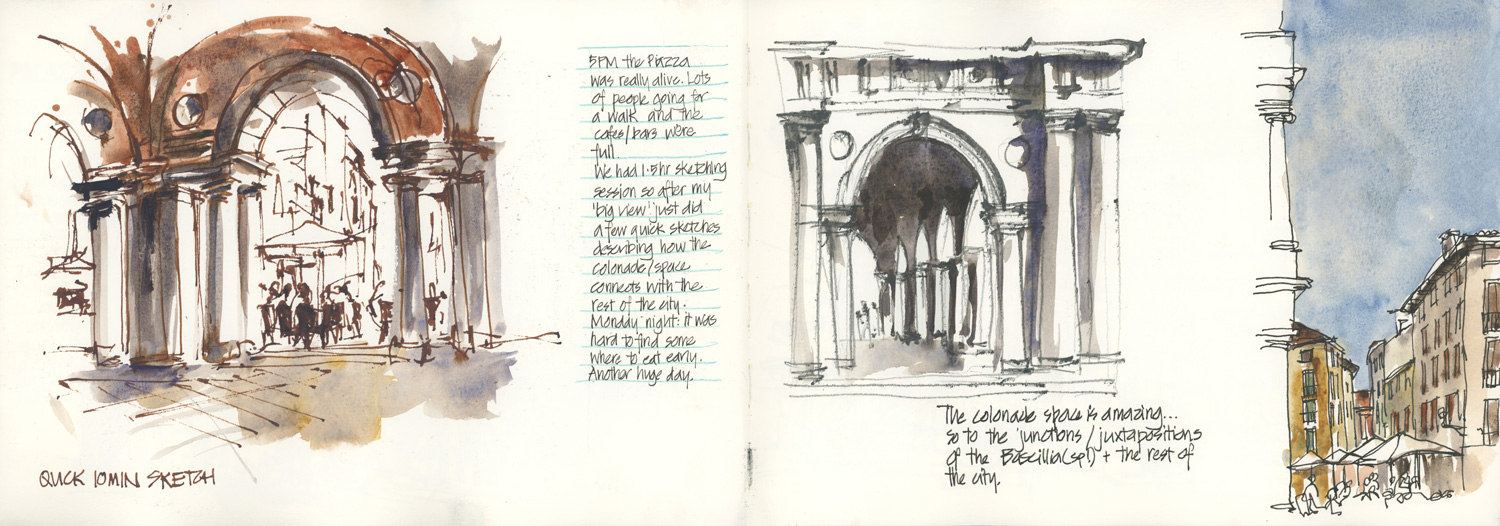 5PM the Piazza
was really alive. Lots
of people going for
a walk and the
cafes/bars were
full.
We had 1.5hr sketching
session so after my
'big view' just did
a few quick sketches
describing how the
colonade/space
connects with the
rest of the city.
Monday night: it was
hard to find some
where to eat early.
Another huge day.
QUICK 10MIN SKETCH
The colonade space is amazing...
so to the junctions/juxtapositions
of the Bascillia(sp!) + the rest of
the city.